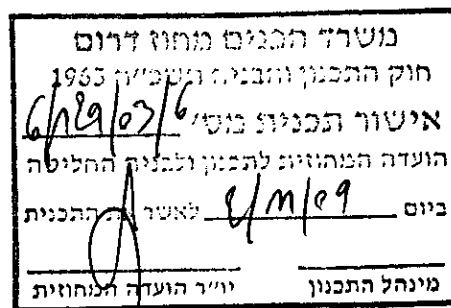 משרד הפנים מחוז דרום
חוק התכנון והבניה תשכ"ה 1965
אישור תכנית מס' 6/129/03/6
הועדה המחוזית לתכנון ולבניה החליטה
ביום 2/11/09 לאשר את התכנית
מינהל התכנון יו"ר הועדה המחוזית